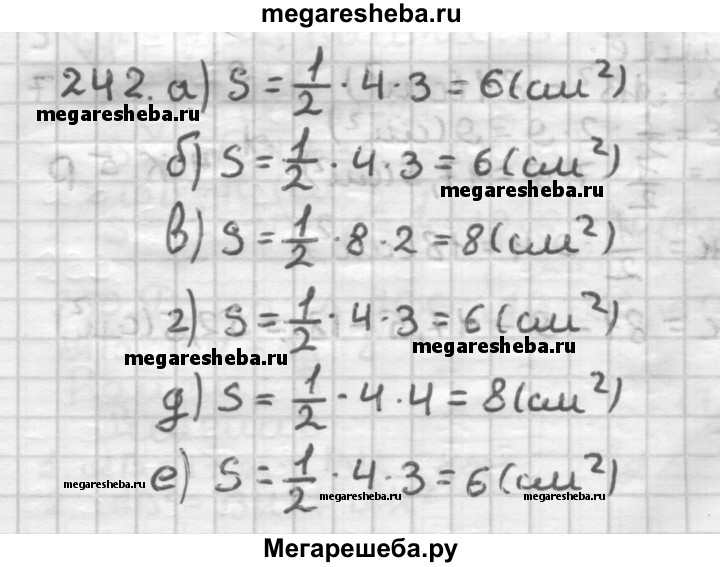 megaresheba.ru
242. а) S = 1/2 · 4 · 3 = 6 (см²)
megaresheba.ru
б) S = 1/2 · 4 · 3 = 6 (см²)
megaresheba.ru
в) S = 1/2 · 8 · 2 = 8 (см²)
г) S = 1/2 · 4 · 3 = 6 (см²)
megaresheba.ru megaresheba.ru
д) S = 1/2 · 4 · 4 = 8 (см²)
megaresheba.ru е) S = 1/2 · 4 · 3 = 6 (см²)
megaresheba.ru megaresheba.ru
Мегарешеба.ру